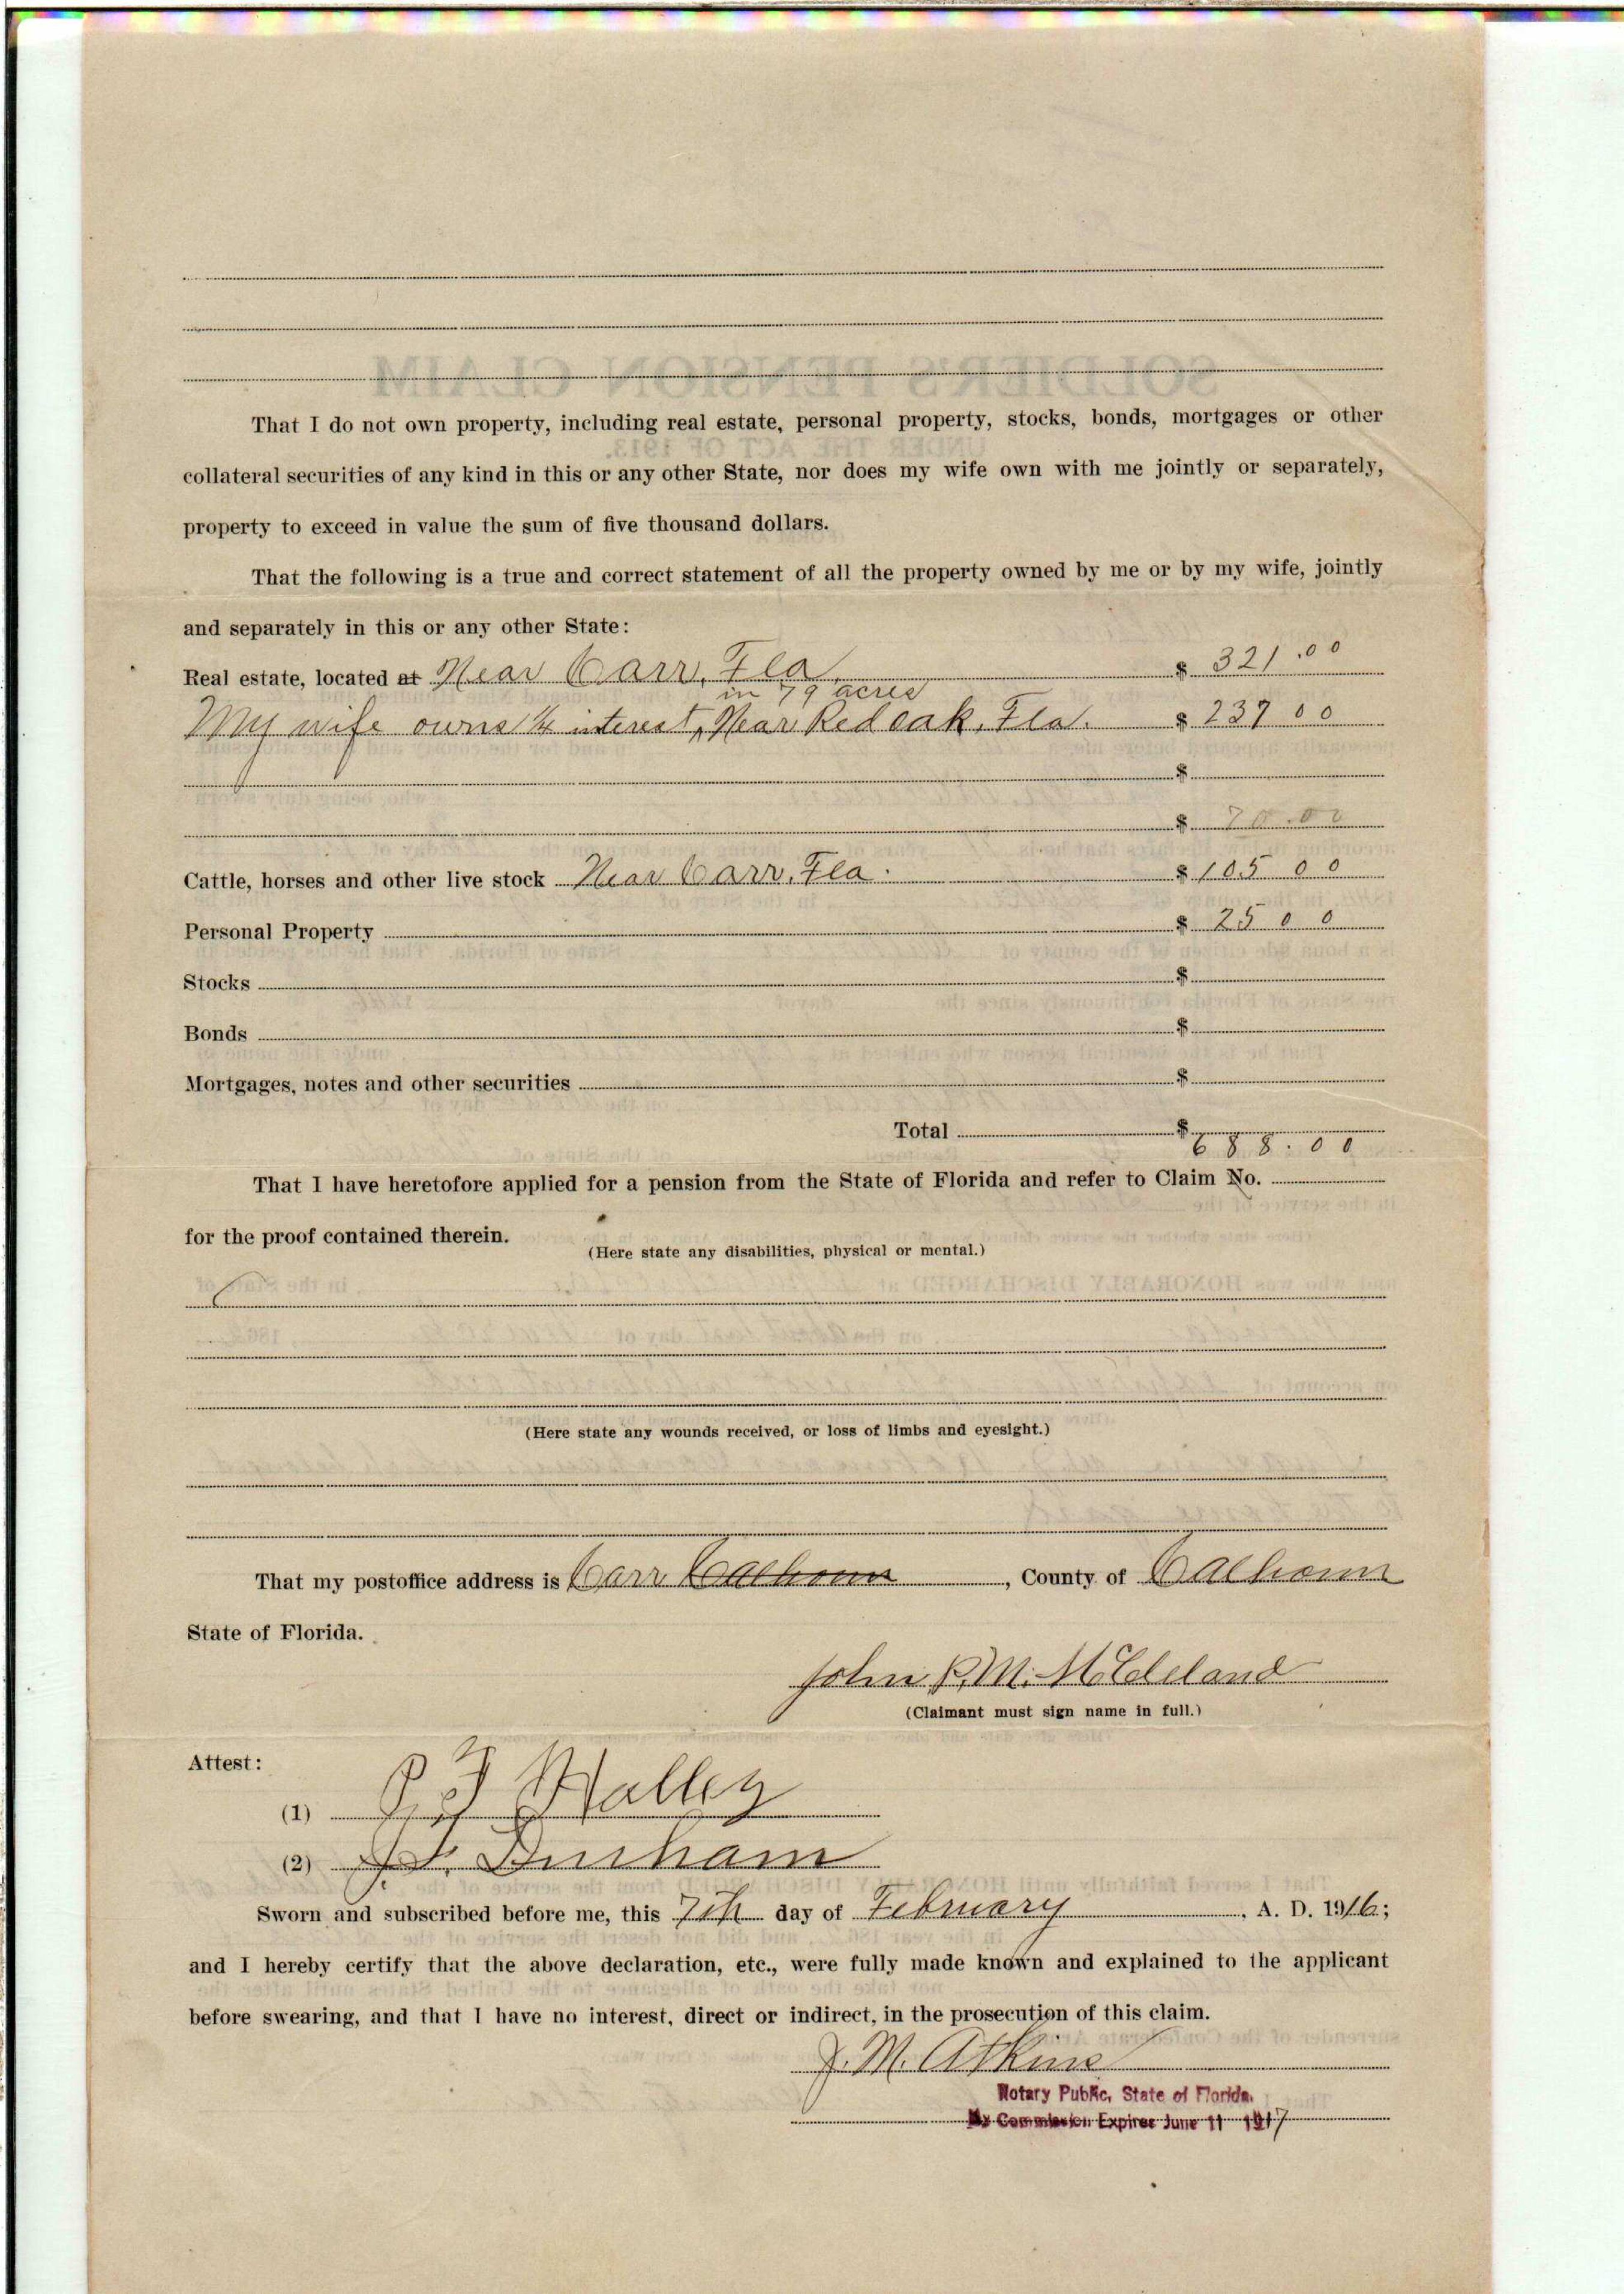 That I do not own property, including real estate, personal property, stocks, bonds, mortgages or other
collateral securities of any kind in this or any other State, nor does my wife own with me jointly or separately,
property to exceed in value the sum of five thousand dollars.
That the following is a true and correct statement of all the property owned by me or by my wife, jointly
and separately in this or any other State:
Real estate, located at Near Carr, Fla. $ 321.00
in 79 acres
My wife owns 1/4 interest, Near Red oak, Fla. $ 237 00
$
$
Cattle, horses and other live stock Near Carr, Fla. $ 105 00
Personal Property $ 25 00
Stocks $
Bonds $
Mortgages, notes and other securities $
Total $ 688.00
That I have heretofore applied for a pension from the State of Florida and refer to Claim No.
for the proof contained therein.
(Here state any disabilities, physical or mental.)
(Here state any wounds received, or loss of limbs and eyesight.)
That my postoffice address is Carr Calhoun, County of Calhoun
State of Florida.
John P.M. McCleland
(Claimant must sign name in full.)
Attest:
(1)
(2) Durham
Sworn and subscribed before me, this 7th day of February, A. D. 1916;
and I hereby certify that the above declaration, etc., were fully made known and explained to the applicant
before swearing, and that I have no interest, direct or indirect, in the prosecution of this claim.
J. M. Atkins
Notary Public, State of Florida.
My Commission Expires June 11 1917